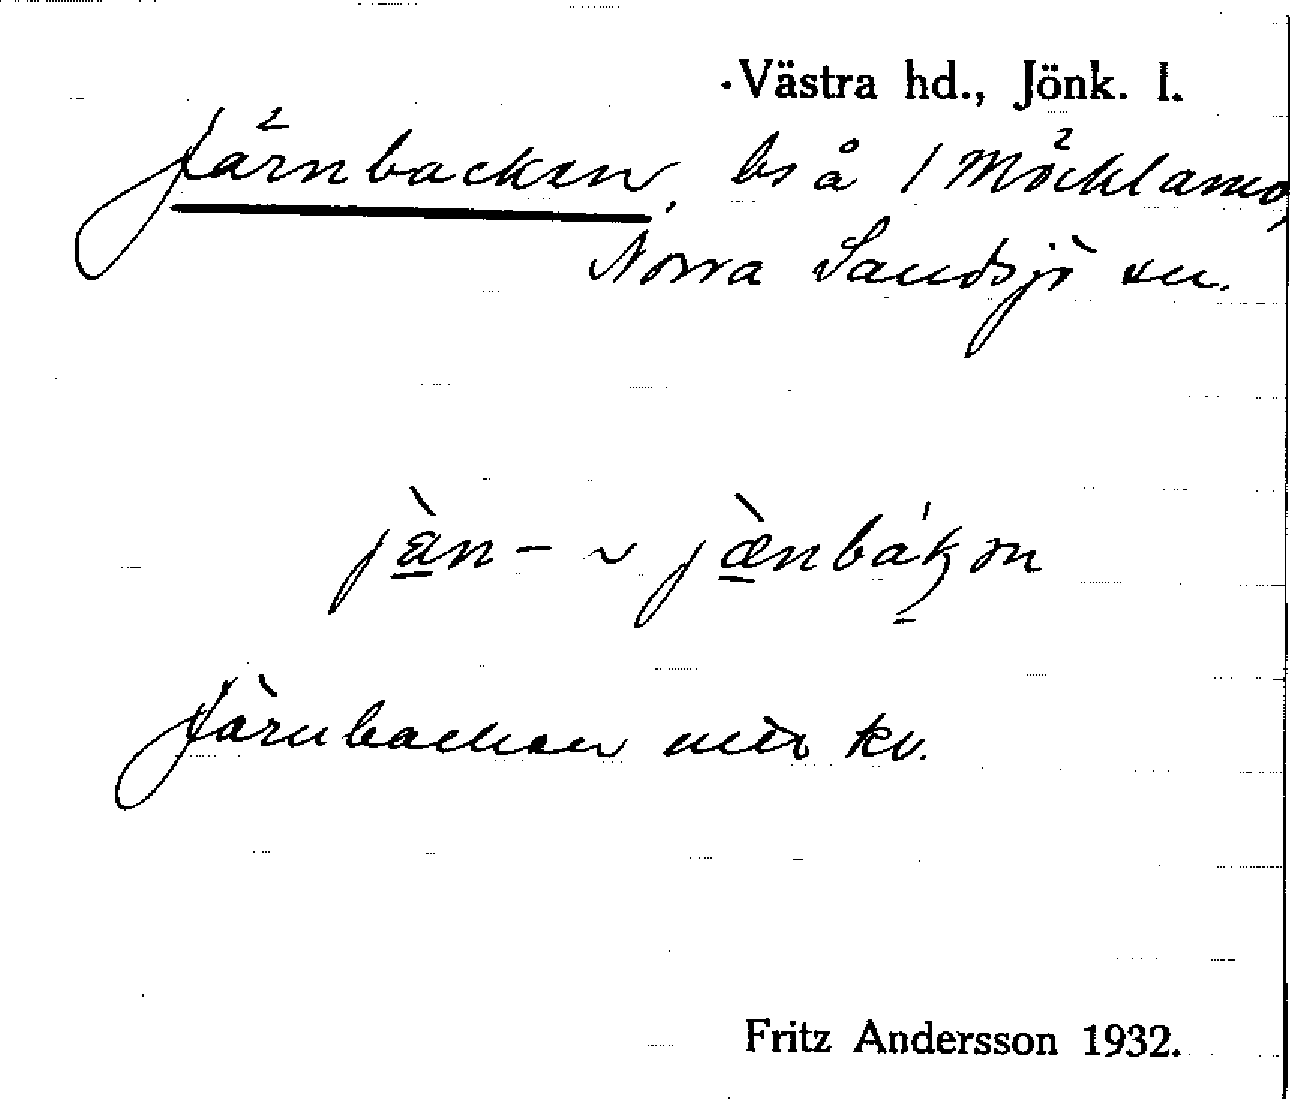 Västra hd., Jönk. l.
Järnbacken, bs å 1 Möcklamo,
Norra Sandsjö sn.
jæ̀n- ~ jæ̀nbák̠ən
Järnbacken kv.
Fritz Andersson 1932.